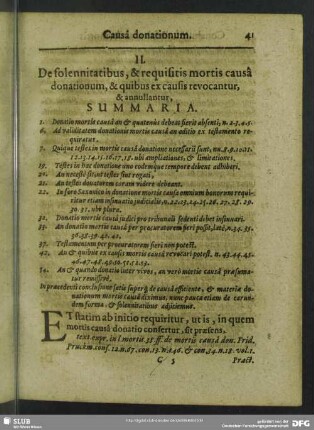 Causâ donationum. 41
II.
De solennitatibus, & requisitis mortis causâ
donationum, & quibus ex causis revocantur,
& annullantur,
SUMMARIA.
1. Donatio mortis causâ an & quatenùs debeat fieri absenti, n. 2.3.4.5.
6. Ad validitatem donationis mortis causâ an aditio ex testamento re-
quiratur.
7. Quique testes in mortis causâ donatione necessarii sunt, nu. 8.9.10.11.
12.13.14.15.16.17.18. ubi ampliationes, & limitationes.
19. Testes in hac donatione uno eodemque tempore debent adhiberi.
20. An necesse sit ut testes sint rogati,
21. An testes donatorem coram videre debeant.
22. In jure Saxonico in donatione mortis causa omnium bonorum requi-
ritur etiam insinuatio judicialis, n. 22.23.24.25.26.27.28.29.
30.31. ubi plura.
32. Donatio mortis causâ judici pro tribunali sedenti debet insinuari.
33. An donatio mortis causâ per procuratorem fieri possit, latè, n. 34.35.
36.38.39.40.41.
37. Testamentum per procuratorem fieri non potest.
42. An & quibus ex causis mortis causâ donatio revocari potest. n. 43.44.45.
46.47.48.49.50.51.52.53.
54. An & quando donatio inter vivos, an verò mortis causâ præsuma-
tur remissivè.
In præcedenti conclusione satis superq́; de causâ efficiente, & materiâ do-
nationum mortis causâ diximus, nunc pauca etiam de earun-
dem forma, & solennitatibus adjiciemus.
ET statim ab initio requiritur, ut is, in quem
mortis causâ donatio confertur, sit præsens.
text. expr. in l. mortis 38. ff. de mortis causâ don. Frid.
Pruckm. cons. 12. n. 67. con. 13. n. 246. & con. 34. n. 18. vol. 1.
C 5 Pract.
SLUB
Wir führen Wissen.
gefördert von der
Deutschen Forschungsgemeinschaft
DFG